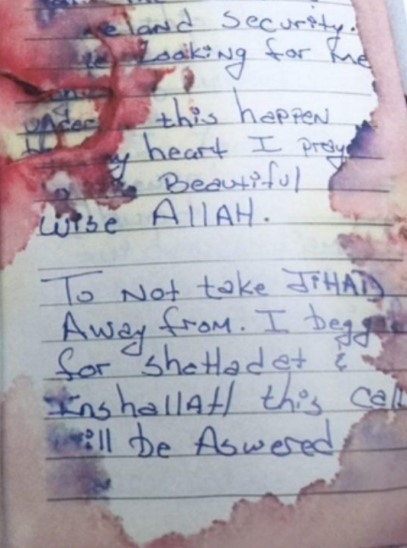 eland Security.
Looking for me
this happen
my heart I pray
Beautiful
wise AllAH.
To Not take JiHAD
Away from. I begg
for shehadet &
InshallAH this call
ill be Aswered